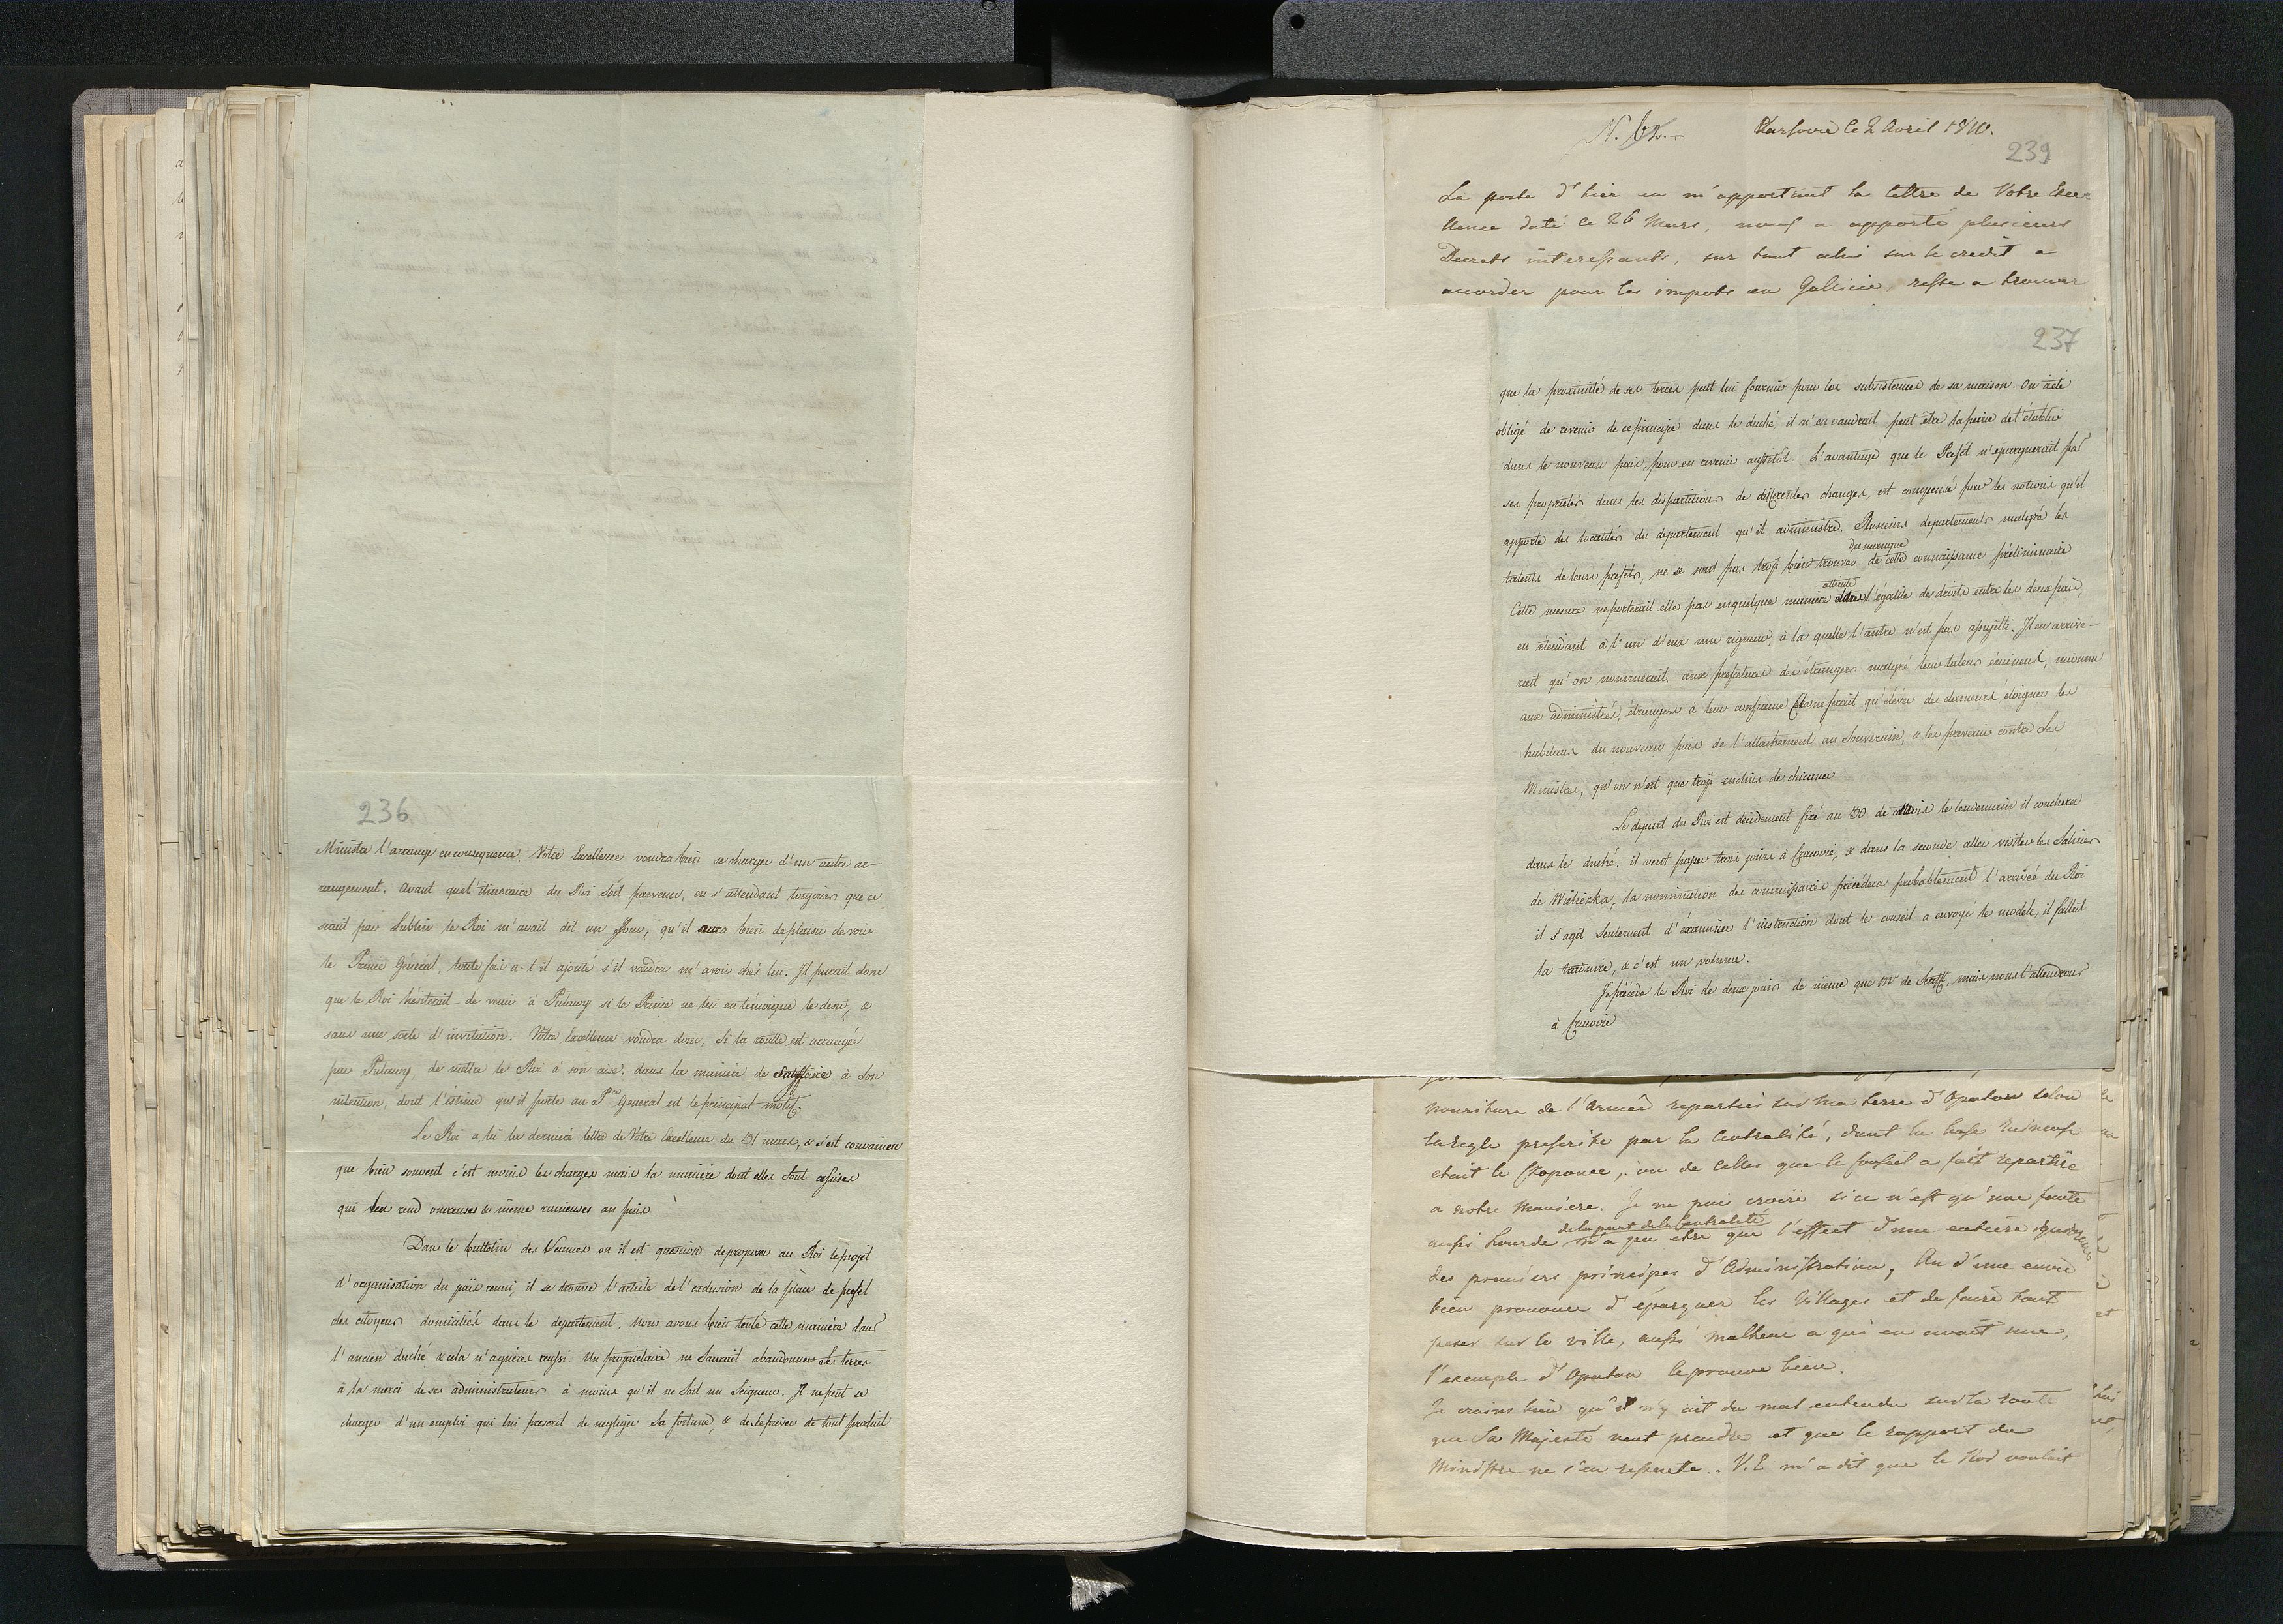 236
Ministre l'arrange en consequence. Votre Excellence voudra bien se charger d'un autre ar-
rangement. Avant que l'itineraire du Roi soit parvenu, on s'attendant toujours que ce
serait par Lublin le Roi m'avait dit un jour, qu'il aura bien de plaisir de voir
le Prince Général, toute fois a-t-il ajouté s'il voudra m'avoir chés lui. Il parait donc
que le Roi hésiterait de venir à Pulawy si le Prince ne lui en témoigne le desir, &
sans une sorte d'invitation. Votre Excellence voudra donc, si la routte est arrangée
par Pulawy, de mettre le Roi à son aise, dans la maniere de satisfaire à son
intention, dont l'estime qu'il porte au Pce General est le principal motif.
Le Roi a lu la derniere lettre de Votre Excellence du 31 mars, & s'est convaincu
que bien souvent c'est moins les charges mais la manière dont elles sont assises
qui les rend onereuses & même ruineuses au païs
Dans le bulletin des Seances ou il est question de proposer au Roi le projet
d'organisation du païs reuni, il se trouve l'article de l'exclusion de la place de prefet
des citoyens domiciliés dans le departement. nous avons bien tenté cette maniere dans
l'ancien duché & cela n'a guères reussi. Un proprietaire ne saurait abandonner ses terres
à la merci de ses administrateurs à moins qu'il ne soit un Seigneur. Il ne peut se
charger d'un emploi qui lui prescrit de negliger sa fortune, & de se priver de tout produit
N. 62.- Varsovie le 2 Avril 1810.
239
La poste d'hier en m'apportant la lettre de Votre Exce-
llence daté le 26 Mars, nous a apporté plusieurs
Decrets interessants, sur tout celui sur le credit a
accorder pour les impots en Galicie, reste a trouver
237
que la proximité de ses terres peut lui fournir pour les subsistences de sa maison. On a été
obligé de revenir de ce principe dans le duché, il n'en vaudrait peut être la peine de l'établir
dans le nouveau païs, pour en revenir aussitôt. L'avantage que le Prefet n'épargnerait pas
ses proprietés dans les dispartitions de differentes charges, est compensé par les notions qu'il
apporte des localités du departement qu'il administre. Plusieurs departements malgré les
talents de leurs prefets, ne se sont pas trop bien trouvés du manque de cette connaissance préliminaire
Cette mesure ne porterait elle pas en quelque maniere atteinte l'égalité des droits entre les deux païs,
en étendant à l'un d'eux une rigueur, à la quelle l'autre n'est pas assujetti. Il en arrive-
rait qu'on nommerait aux prefectures des étrangers malgré leur talens éminens, inconnu
aux administrés, étrangers à leur confiance Cela ne ferait qu'élever des clameurs, éloigner les
habitans du nouveau païs de l'attachement au Souverain, & les prevenir contre Ses
Ministres, qu'on n'est que trop enclins de chicaner
Le depart du Roi est decidement fixé au 30 de ce mois le lendemain il couchera
dans le duché. il veut passer trois jours à Cracovie, & dans la seconde aller visiter les Salines
de Wieliezka, la nomination des commissaires précédera probablement l'arrivée du Roi
il s'agit seulement d'éxaminer l'instruction dont le conseil a envoyé le modele, il fallait
la traduire, & c'est un volume.
Je précède le Roi de deux jours de même que Mr de Senfft, mais nous l'attendrons
à Cracovie
nouriture de l'Armée reparties sur ma terre d'Opatow selon
la regle prescrite par la Centralité, dont la base
etait le , ou de celles que le Conseil a fait repartir
a notre maniere. Je ne puis croire si ce n'est qu'une faute
aussi lourde de la part de la Centralité n'a pu etre que l'effect d'une entiere ignorance
des premiers principes d'Administration, Ou d'une envie
bien prononcé d'épargner les Villages et de faire tout
peser sur la ville, aussi malheur a qui en avait une,
l'exemple d'Opatow le prouve bien.
Je crains bien qu'il n'y ait du mal entendu sur la route
que Sa Majesté veut prendre et que le rapport du
Ministre ne s'en ressente. V.E m'a dit que le Roi voulait